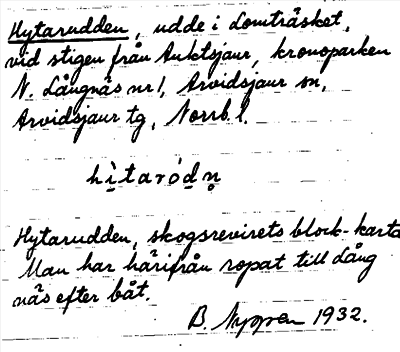 Hytarudden, udde i Lomträsket,
vid stigen från Auktsjaur, kronoparken
N. Långnäs nr 1, Arvidsjaur sn,
Arvidsjaur tg, Norrb. l.
hìtaródn
Hytarudden, skogsrevirets block-karta
Man har härifrån ropat till Lång
näs efter båt.
B. Nyppen 1932.